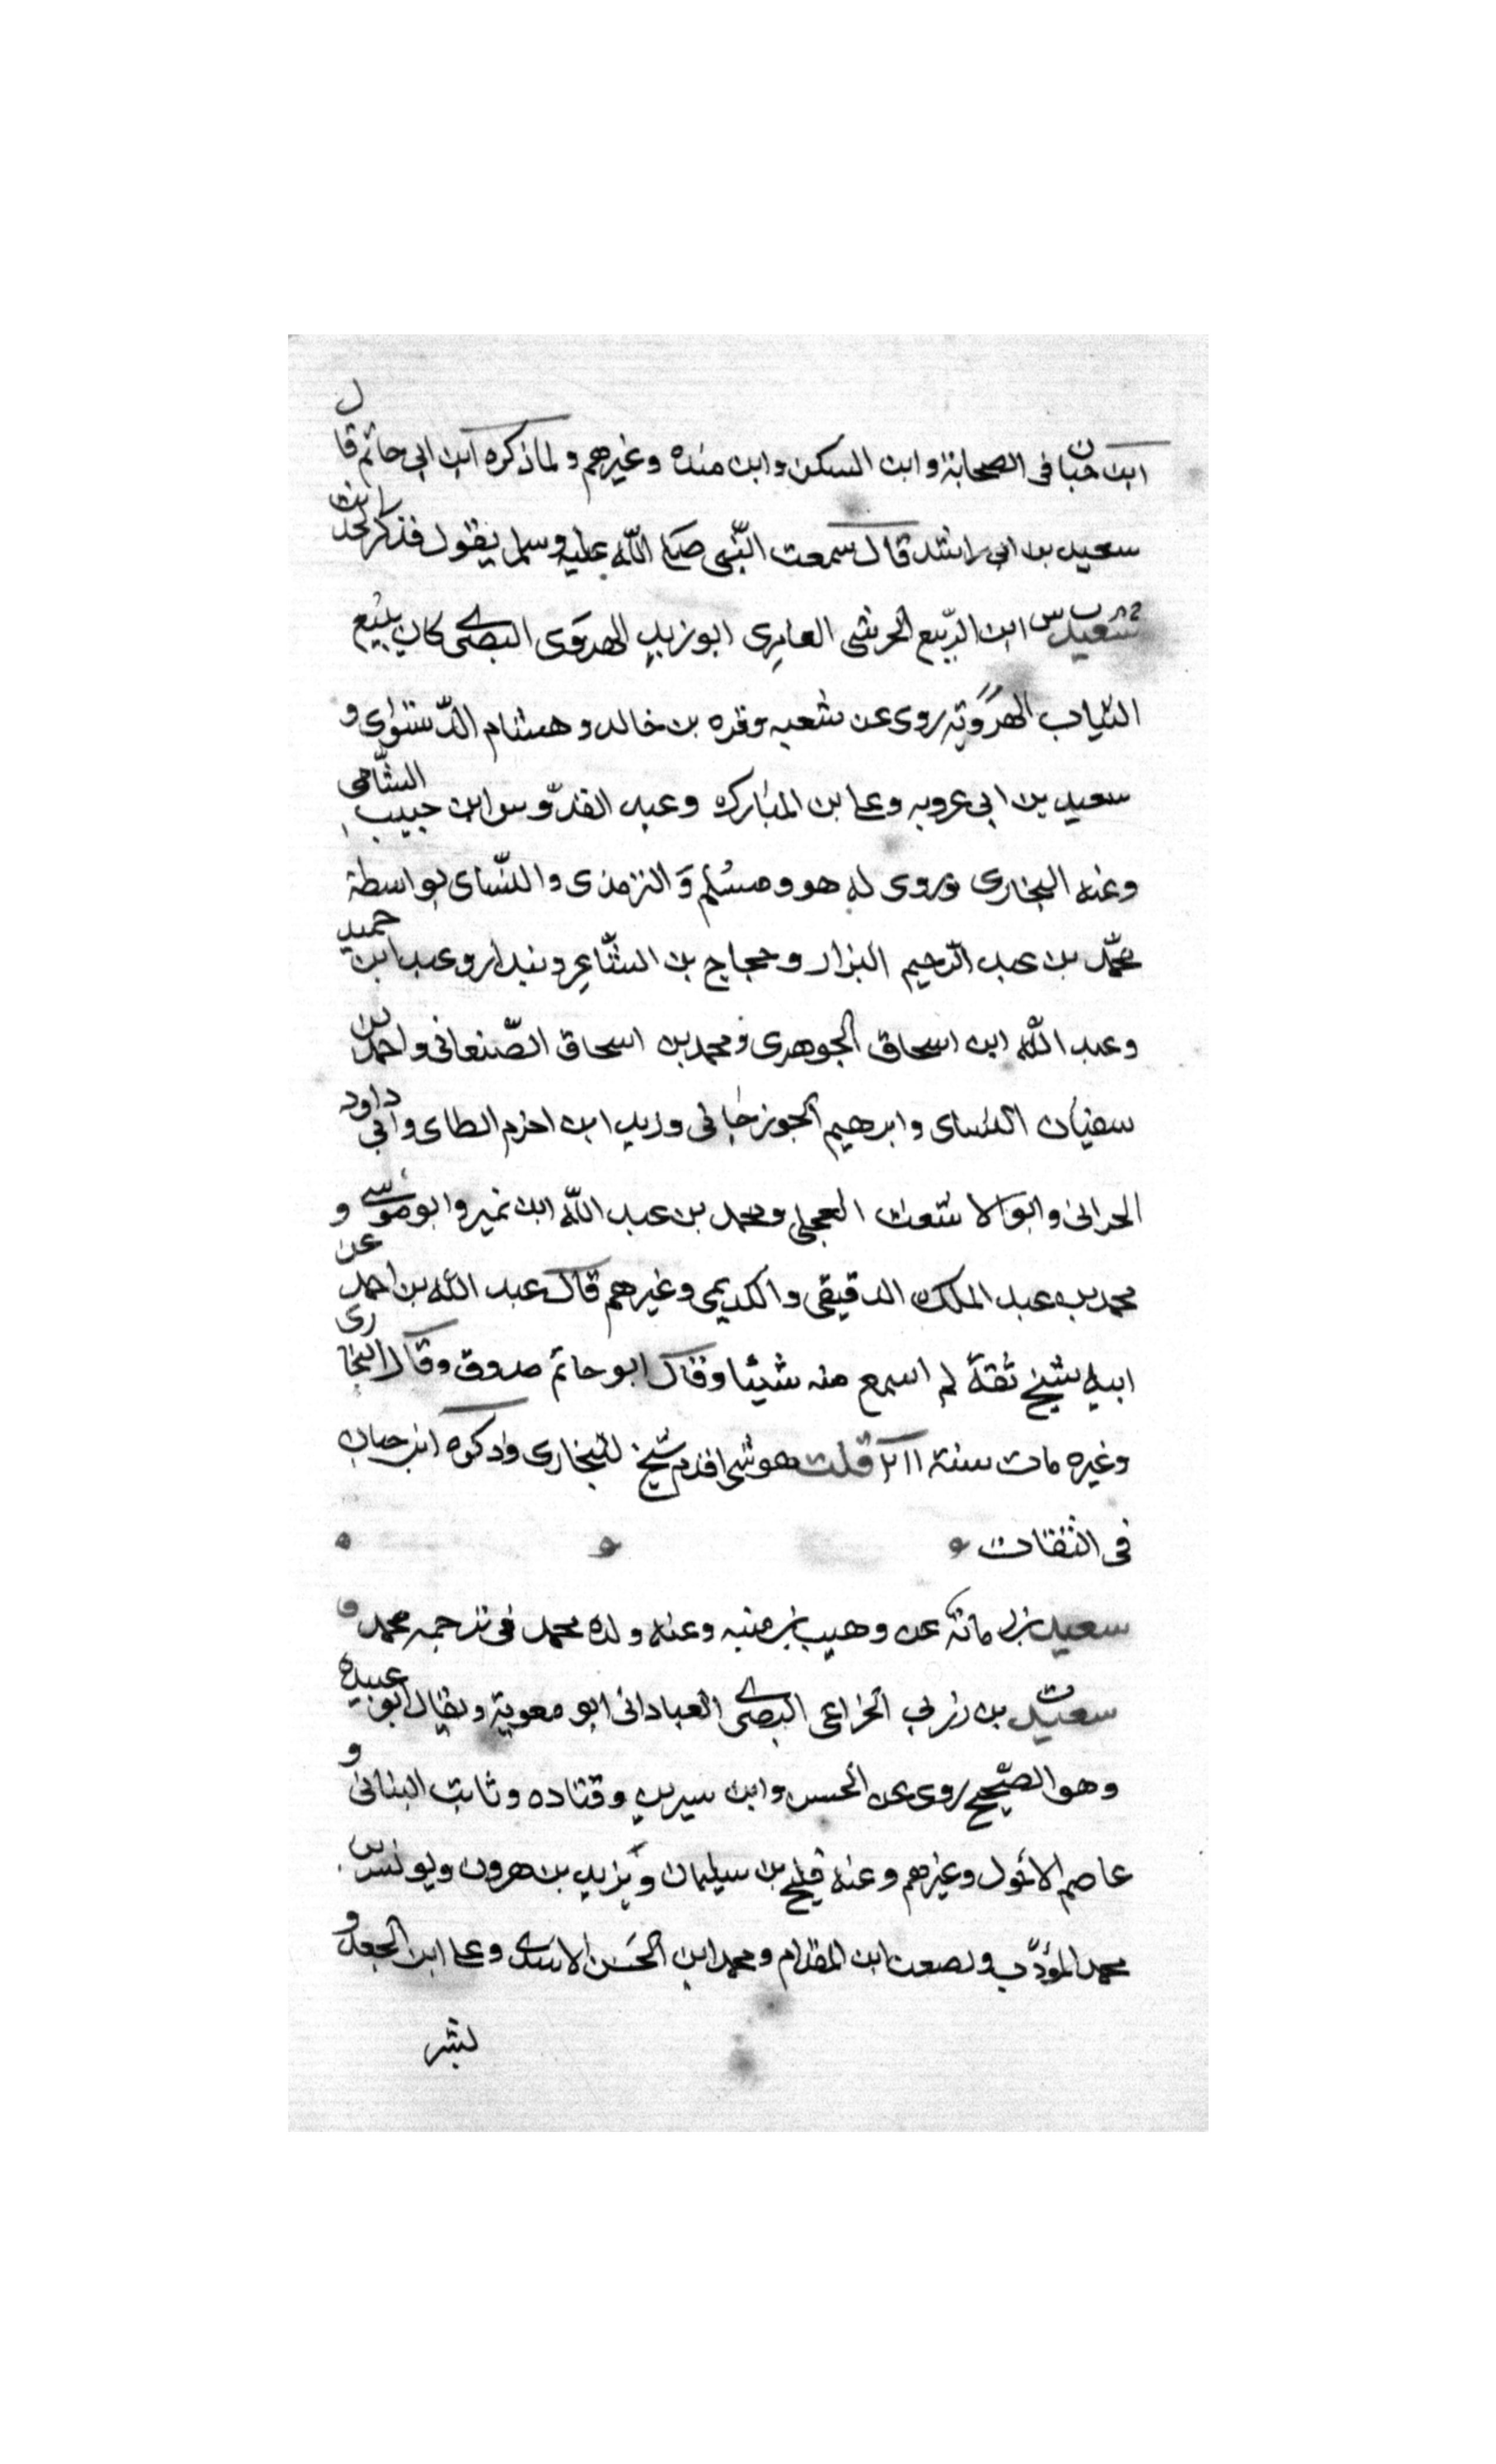 ابن حبان في الصحابة وابن السكن وابن منده وغيرهم ولما ذكره ابن ابي حاتم قال
سعيد بن ابي راشد قال سمعت النبي صلى الله عليه وسلم يقول فذكر الحديث
سعيد ابن الربيع الحرشي العامري ابو زيد الهروي البصري كان يبيع
الثياب الهروية روى عن شعبه وقره بن خالد وهشام الدستوائي و
سعيد بن ابي عروبه وعلى بن المبارك وعبد القدوس ابن حبيب الشامي
وعنه البخاري وروى له هو ومسلم والترمذي والنساي بواسطة
محمد بن عبد الرحيم البزار وحجاج بن الشاعر وبندار وعبد ابن حميد
وعبد الله ابن اسحاق الجوهري ومحمد بن اسحاق الصنعاني واحمد بن
سفيان النساي وابرهيم الجوزجاني وزيد ابن اخزم الطاي وابي داود
الحراني وابو الاشعث العجلي ومحمد بن عبد الله ابن نمير وابو موسى و
محمد بن عبد الملك الدقيقي والكديمي وغيرهم قال عبد الله بن احمد عن
ابيه شيخ ثقة لم اسمع منه شيئا وقال ابو حاتم صدوق وقال البخاري
وغيره مات سنة ٢١١ قلت هو اقدم شيخ للبخاري وذكره ابن حبان
في الثقات
سعيد بن مانة عن وهيب بن منبه وعنه ولده محمد في ترجمه محمد
سعيد بن زربي الخزاعي البصري العباداني ابو معوية ويقال ابو عبيده
وهو الصحيح روى عن الحسن وابن سيرين وقتاده وثابت البناني و
عاصم الاحول وغيرهم وعنه فليح بن سيليمان ويزيد بن هرون ويونس بن
محمد المؤدب ومصعب ابن المقدام ومحمد ابن الحسن الاسدي وعلى ابن الجعد و
بشر